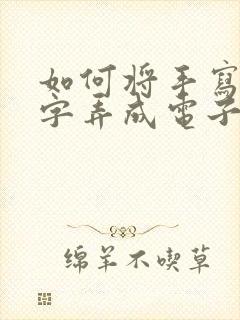 如何将手寫
字弄成電子
绵羊不喫草